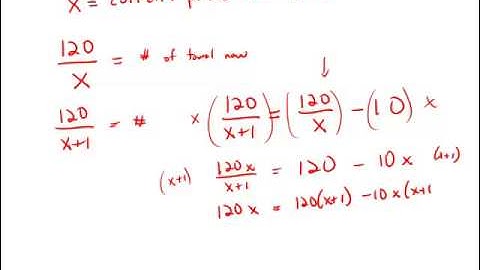 x =
120/x = # of towel now
120/(x+1) = #
x (120/(x+1)) = (120/x) - (10) x
(x+1) 120x/(x+1) = 120 - 10x (x+1)
120x = 120(x+1) - 10x(x+1